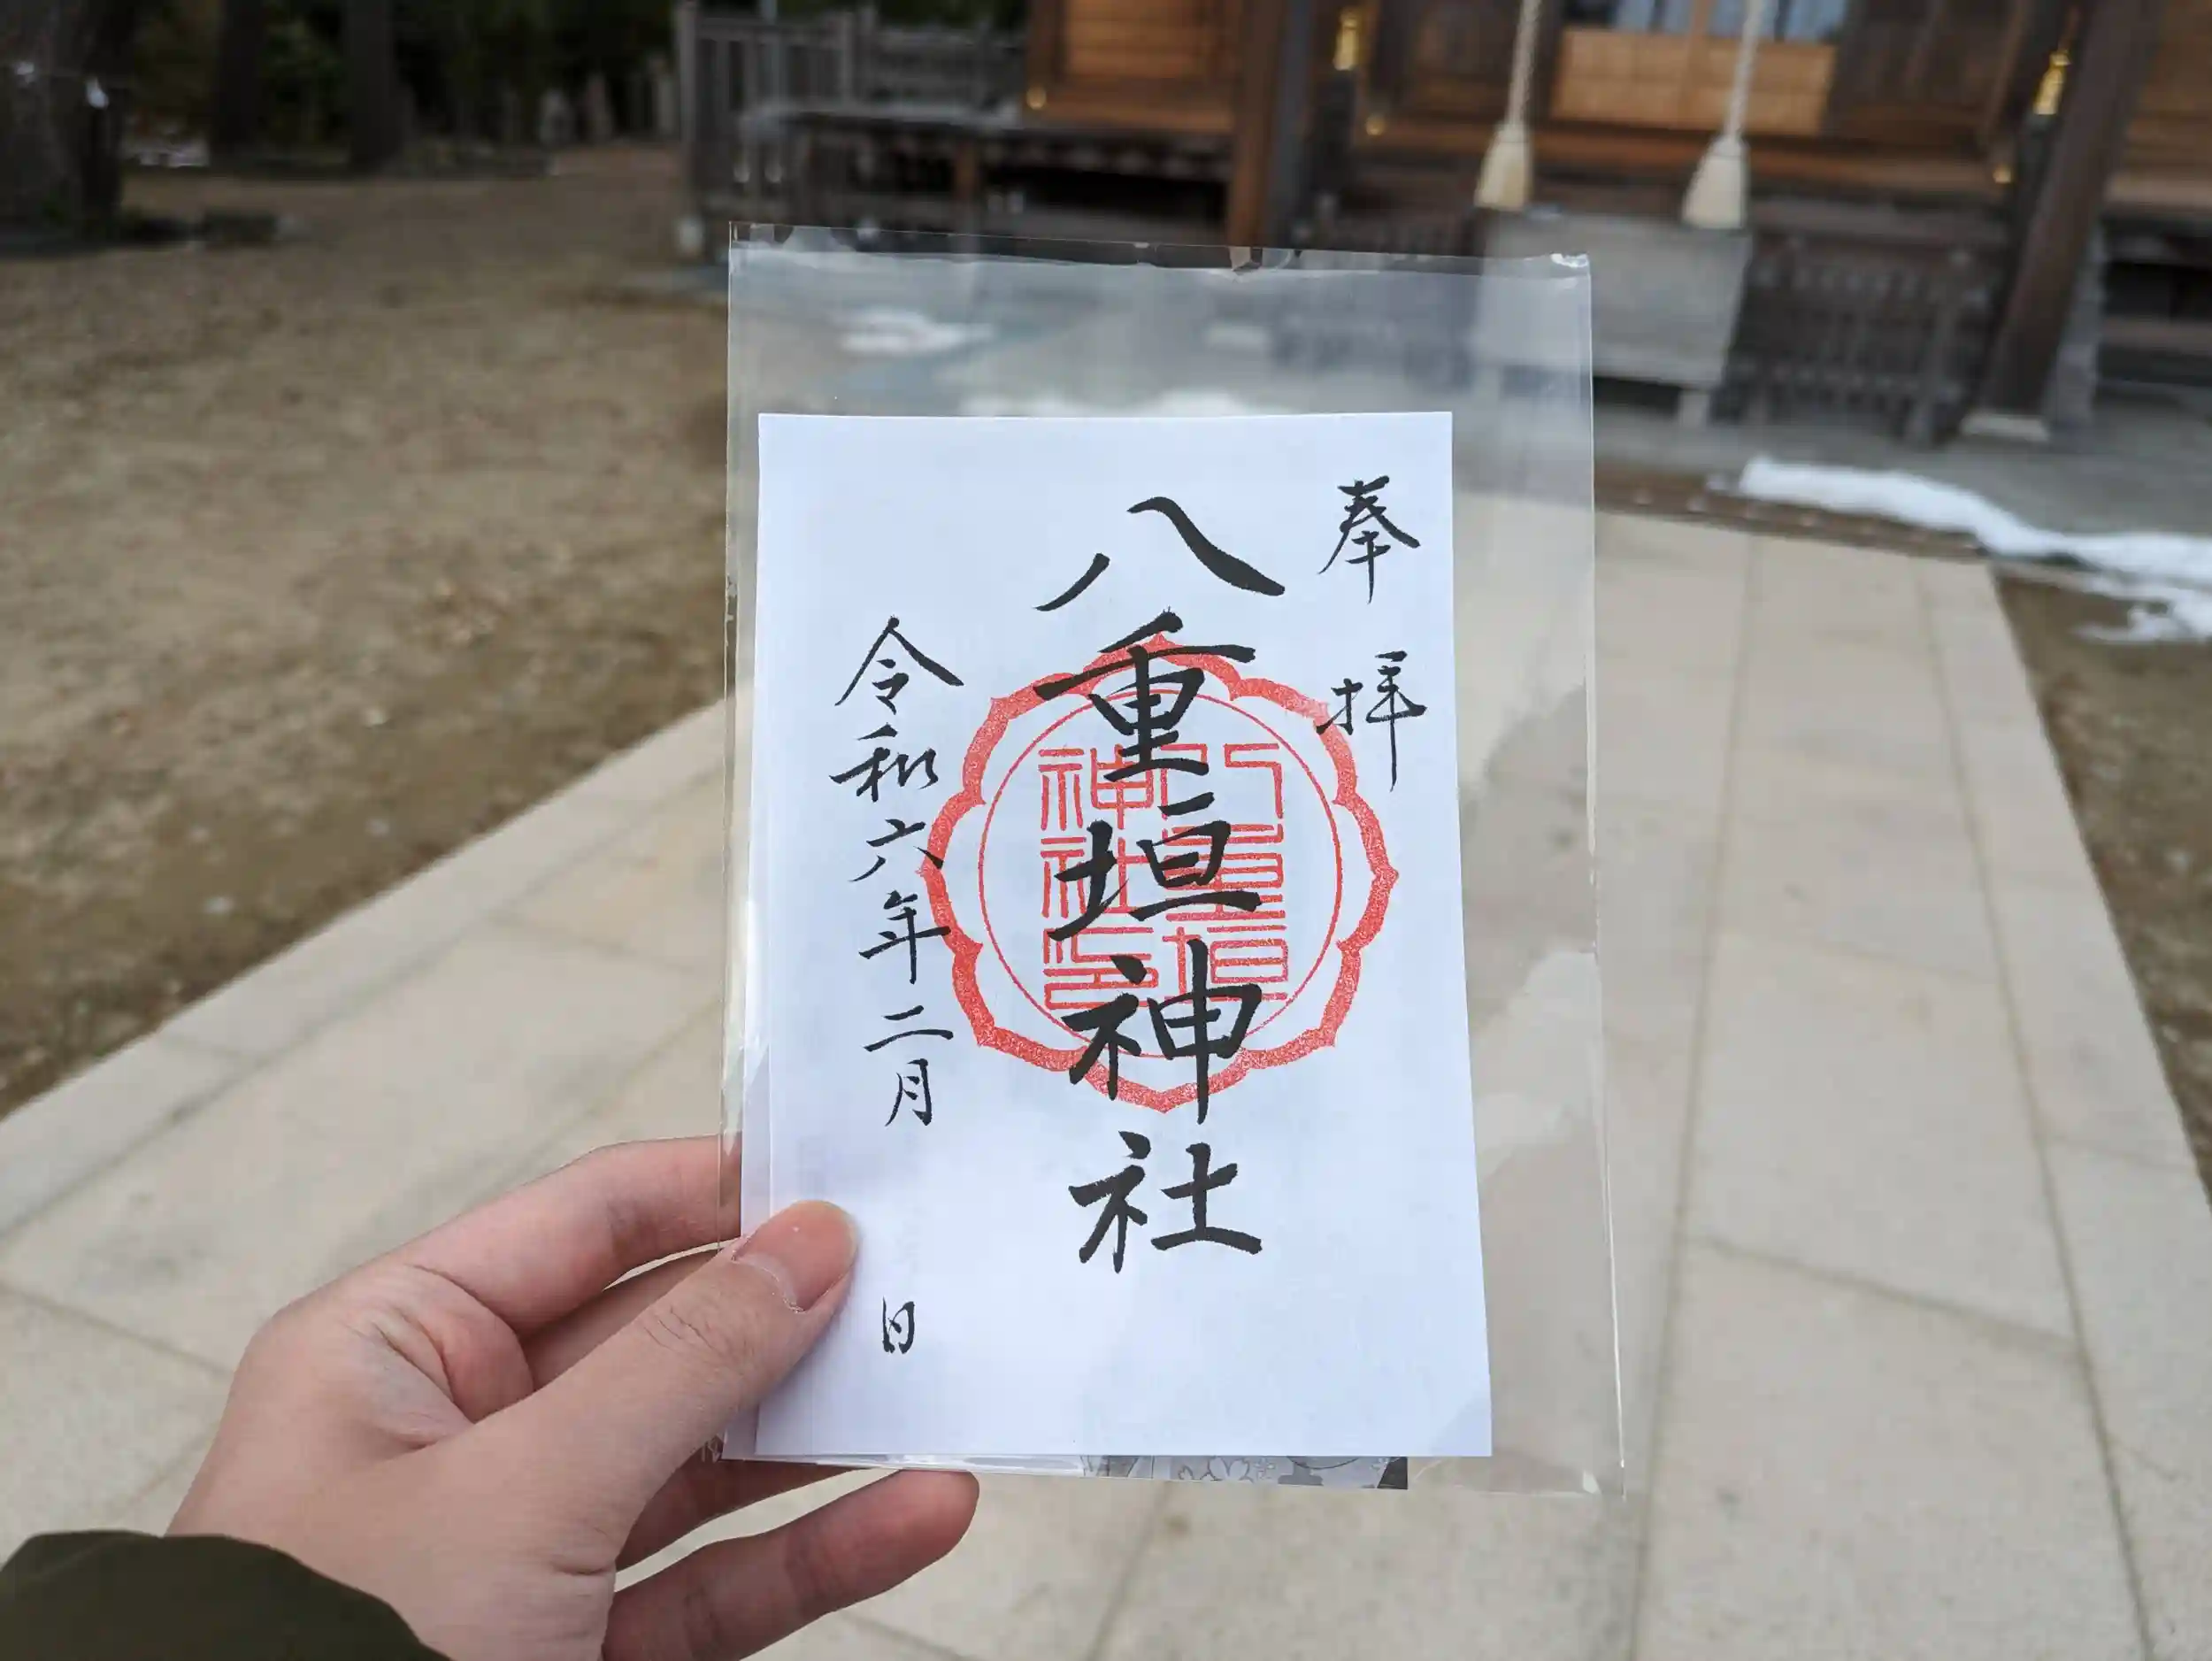 奉拝
八重垣神社
八重垣
神社印
令和六年二月 日